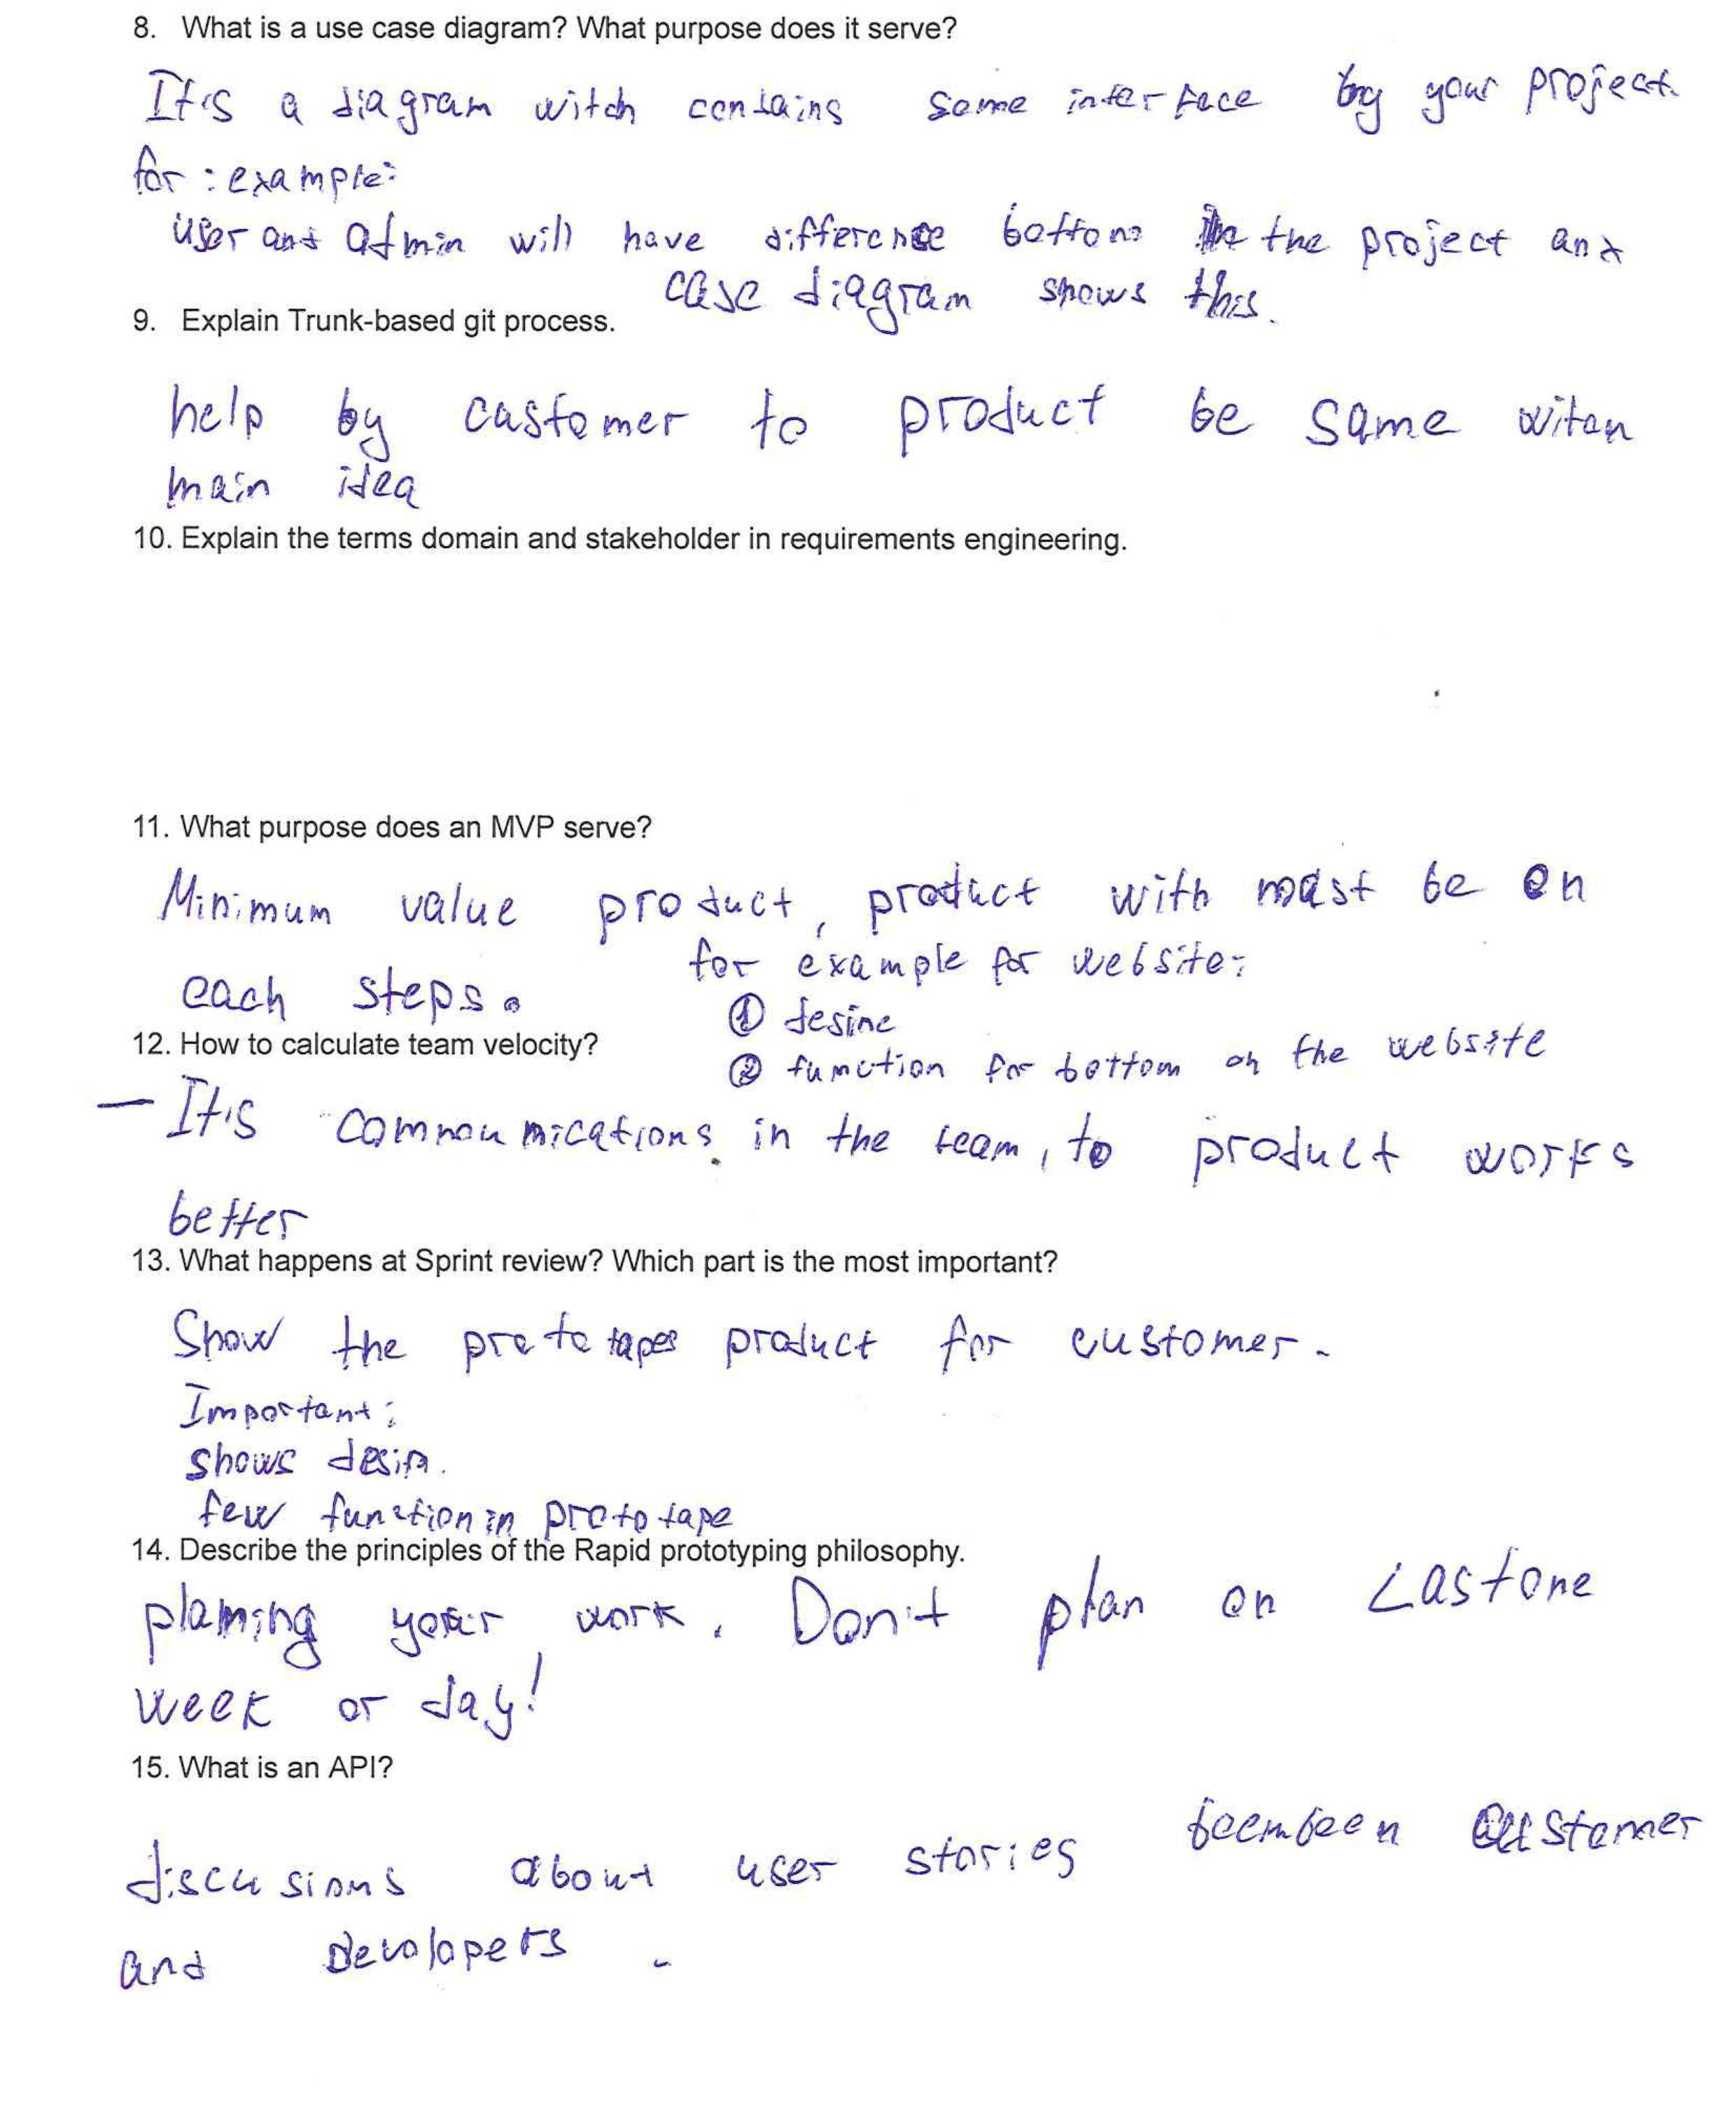 8. What is a use case diagram? What purpose does it serve?
It's a diagram witch contains some interface by your project.
for : example:
user and admin will have difference bottons in the project and
case diagram shows this.
9. Explain Trunk-based git process.
help by customer to product be same
main idea
10. Explain the terms domain and stakeholder in requirements engineering.
11. What purpose does an MVP serve?
Minimum value product, product with must be on
each steps. for example for website:
① desine
12. How to calculate team velocity?
② function for bottom on the website
— It's commounications in the team, to product works
better
13. What happens at Sprint review? Which part is the most important?
Show the prototapes product for customer.
Important:
shows desin.
few function in prototape
14. Describe the principles of the Rapid prototyping philosophy.
planing your work. Don't plan on Lastone
week or day!
15. What is an API?
discusions about user stories beembeen customer
and Devolopers.